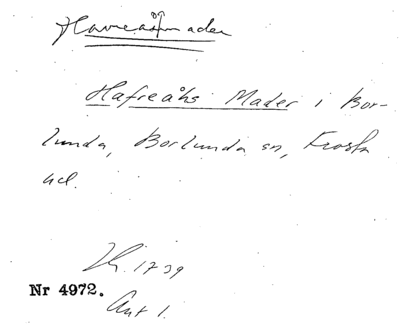 Havreåsmader
Hafreåhs Mader i Bor-
lunda, Borlunda sn, Frosta
hd.
1739
Nr 4972.
Akt 1.